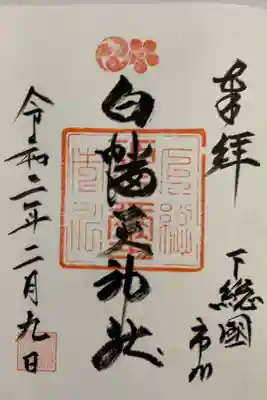 奉拝
下總國
市川
白幡天神社
令和二年二月九日